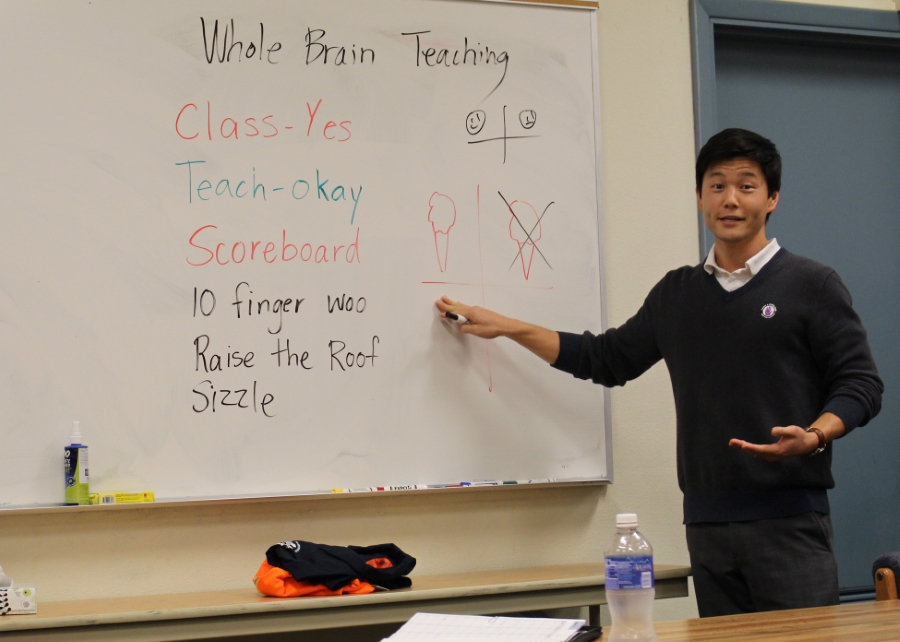 Whole Brain Teaching
Class-Yes
Teach-okay
Scoreboard
10 finger woo
Raise the Roof
Sizzle